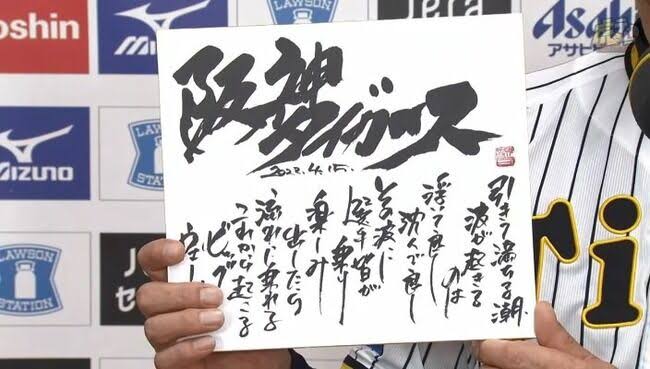 阪神タイガース
2022.4.15.
引きて満ちる潮
波が起きる
のは
浮いて良し
沈んで良し
その波に
選手皆が
乗り
楽しみ
出したら
流れに乗れる
これから起こる
ビッグ
ウェー
oshin
MIZUNO
LAWSON
STATION
Jera
Asah
アサヒビ
LAWSON
STATION
MIZUNO
LAWSON
STATION
J
セ
ri